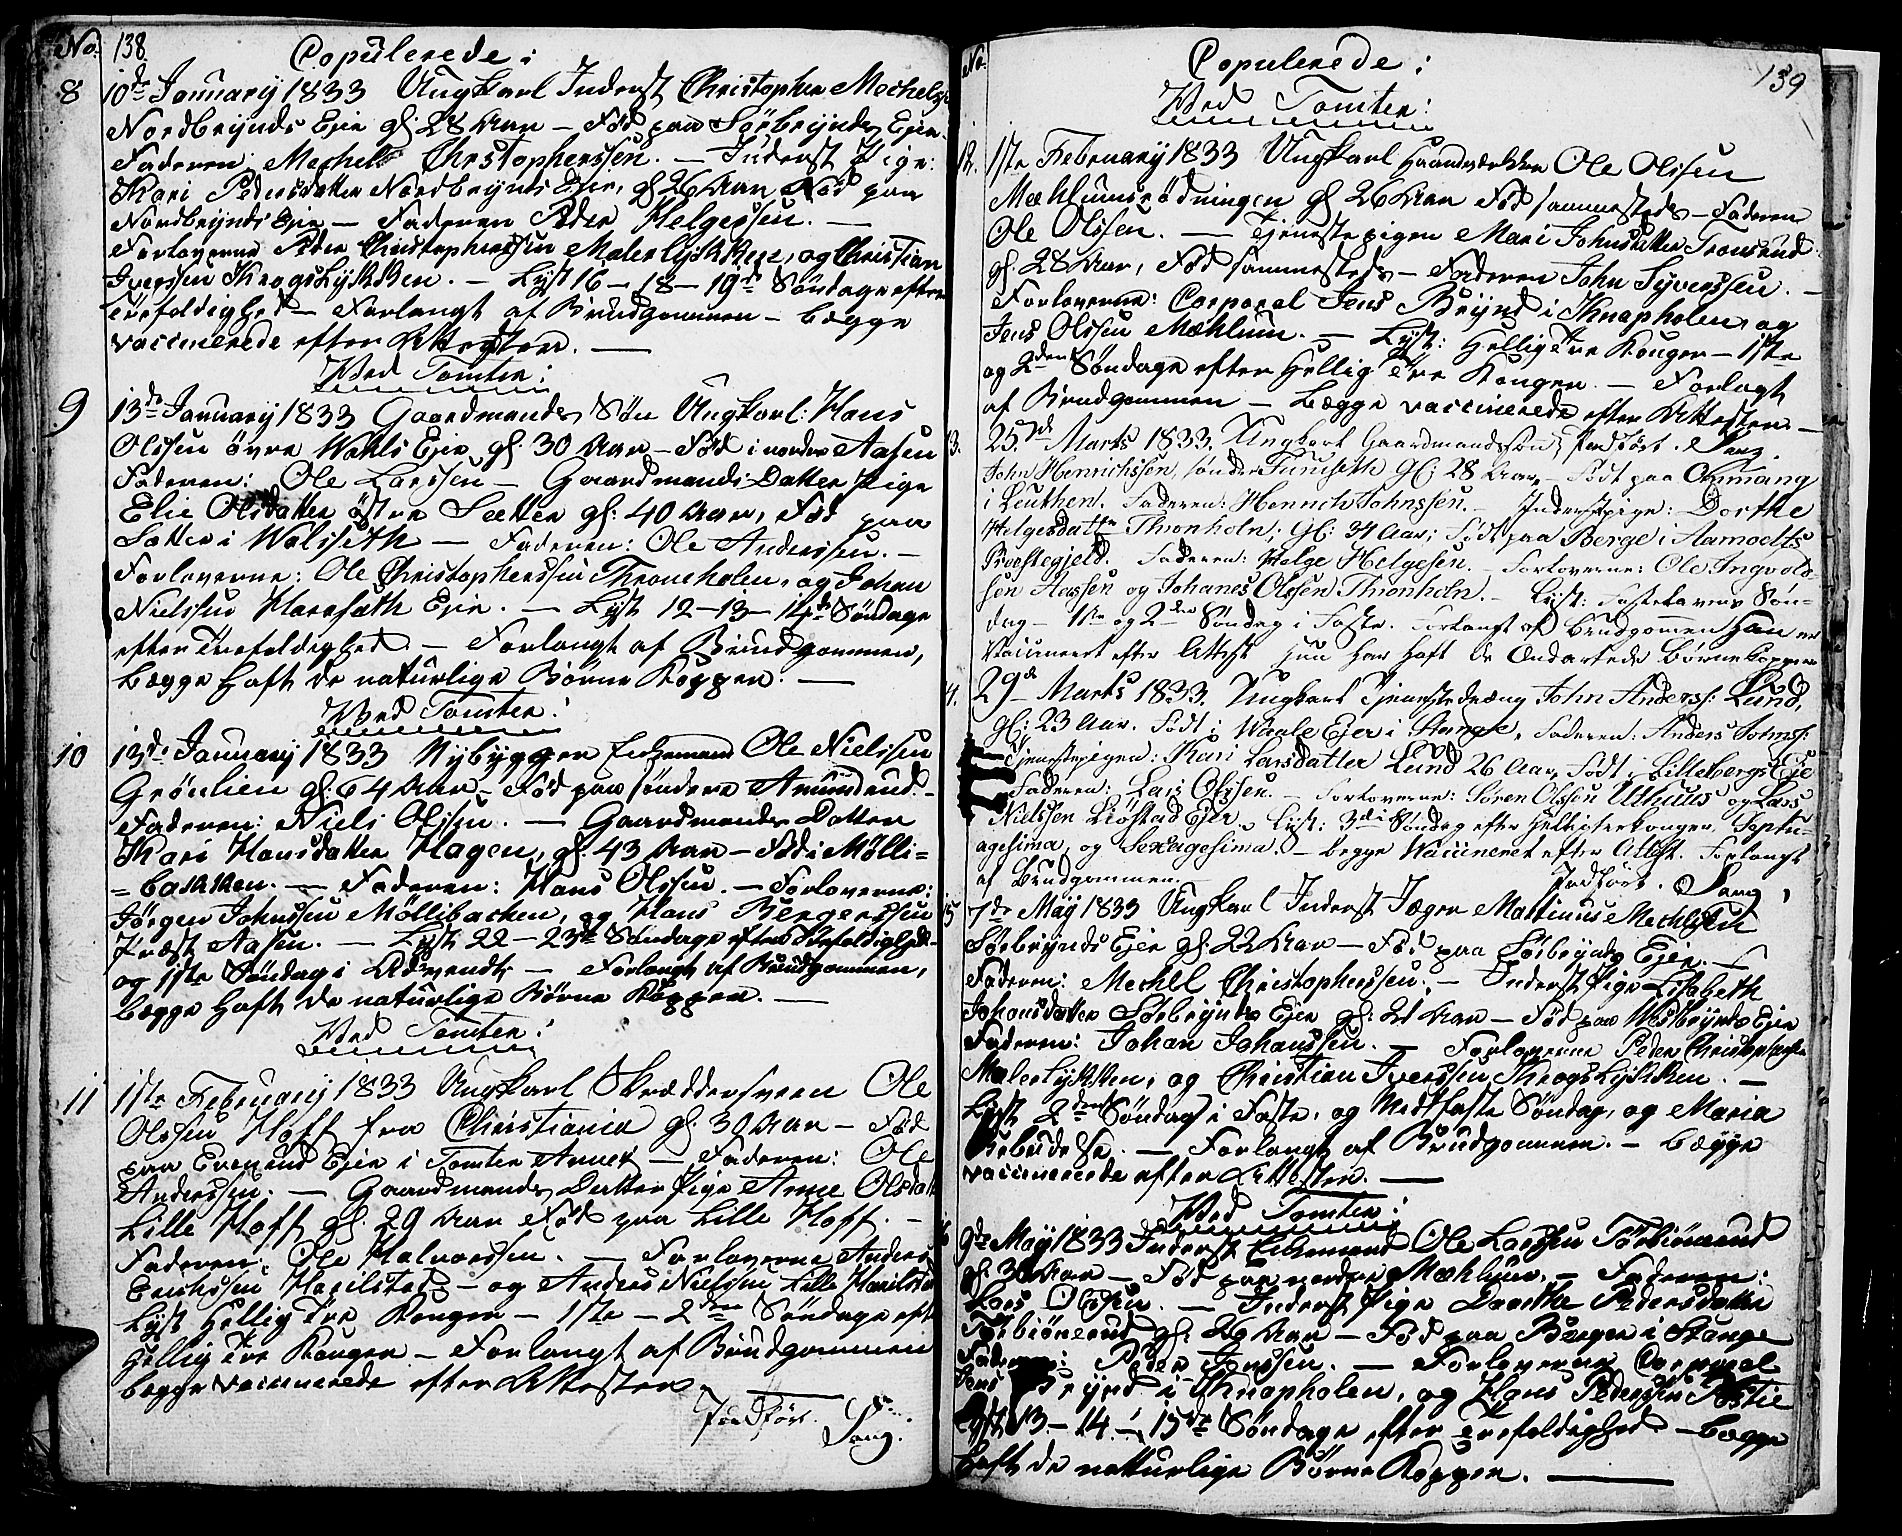 No. 138.
Copulerede:
8 10de January 1833 Ungkarl Inderst Christopher Mechels:
Nordbrÿnds Eje gl: 28 Aar – Fød paa Sørbrÿnds Eje.
Faderen: Mechel Christopherssen. – Inderst Pige:
Kari Pedersdatter Nordbrÿnds Eje, gl 26 Aar Fød paa
Nordbrÿnds Eje – Faderen Peder Helgessen. –
Forloverne Peder Christopherssen Malerlÿkken, og Christian
Iverssen Krogslÿkken. – Lyst 16 – 18 – 19de Søndage efter
Trefoldighed – Forlangt af Brudgommen – begge
vaccinerede efter Attester. –
Ved Tomter:
9 13de January 1833 Gaardmands Søn Ungkarl: Hans
Olssen øvre Wahls Eje gl: 30 Aar – Fød i nordre Aasen
Faderen: Ole Larssen – Gaardmands Datter Pige
Elie Olsdatter østre Sætter gl: 40 Aar, Fød paa
Sætter i Walsseth – Faderen: Ole Anderssen. –
Forloverne: Ole Christopherssen Throneholen, og Johan
Nielssen Harasæth Eje. – Lyst 12 – 13 – 14de Søndage
efter Trefoldighed – Forlangt af Brudgommen,
begge haft de naturlige Børne Kopper. –
Ved Tomter:
10 13de January 1833 Nybygger Enkemand Ole Nielssen
Grønlien gl: 64 Aar – Fød paa søndere Amundrud –
Faderen: Niels Olssen. – Gaardmands Datter
Kari Hansdatter Hagen, gl: 43 Aar – Fød i Mølli=
=bakken. – Faderen: Hans Olssen. – Forloverne:
Jørgen Johnssen Møllibacken, og Hans Bergerssen
Præst Aasen. – Lyst 22 – 23de Søndage efter Trefoldighed –
og 1ste Søndag i Advendt – Forlangt af Brudgommen,
begge haft de naturlige Børne Kopper. –
Ved Tomter:
11 1ste February 1833 Ungkarl Skræddersvend Ole
Olssen Hoff fra Christiania gl: 30 Aar – Fød
paa Evenrud Eje i Tomter Annex – Faderen: Ole
Anderssen. – Gaardmands Datter Pige Anne Olsdatt
Lille Hoff gl: 29 Aar Fød paa Lille Hoff. –
Faderen: Ole Halvorssen. – Forloverne Anders
Erichssen Harilstad – og Anders Nielssen Lille Harilstad
Lyst Hellig Tre Konger – 1ste – 2den Søndage eft
Hellig Tre Konger – Forlangt af Brudgommen
begge vaccinerede efter Attester.
Indført. Sang.
No. Copulerede: 139
Ved Tomter:
12. 1ste February 1833 Ungkarl Haandværker Ole Olssen
Mæhlumsrødningen gl 26 Aar Fød sammesteds – Faderen
Ole Olssen. – Tjenestepigen Mari Johnsdatter Tronsrud
gl: 28 Aar, Fød sammesteds – Faderen John Syverssen. –
Forloverne: Corporal Jens Brÿnd i Knapholen, og
Jens Olssen Mæhlum. – Lyst: Hellig Tre Konger – 1ste
og 2den Søndage efter Hellig Tre Konger. – Forlagt
af Brudgommen – begge vaccinerede efter Attester –
13. 25de Marts 1833. Ungkarl Gaardmandssøn, Indført. Sang.
John Henrichssen, søndre Furuseth gl: 28 Aar, – Født paa Ommang
i Leuthen. Faderen: Henrich Johnssen. – Inderstpige: Dorthe
Helgesdatter Thronholn; Gl: 34 Aar; Født paa Berge i Aamodts
Præstegjeld. Faderen: Helge Helgesen. – Forloverne: Ole Ingvold
sen Aassen og Johanes Olssen Thronholn. – Lyst: Fastelavns Søn-
dag – 1ste og 2den Søndag i Faste. Forlangt af Brudgommen han er
Vaccineert efter Attest hun har haft de Ondartede Børnekopper
4. 29de Marts 1833. Ungkarl Tjenestedreng John Anderss: Lund,
gl: 23 Aar. Født i Waale Ejer i Stange, Faderen: Anders Johns:
Tjenestepigen: Kari Larsdatter Lund 26 Aar, Født i Lillebergs Eje
Faderen: Lars Olssen. – Forloverne: Søren Olssen Udhuus og Lars
Nielssen Liøstad Ejer. Lyst: 3die Søndag efter Helligtrekonger, Septu-
agesima, og Sexagesima. – begge Vaccineret efter Attest. Forlangt
af Brudgommen. – Indført. Sang,
15 7de May 1833 Ungkarl Inderst Jæger Martinus Mechelssen
Sørbrÿnds Ejer gl: 22 Aar – Fød paa Sørbrÿnds Ejer. –
Faderen: Mechel Christopherssen. – Inderst Pige Lisbeth
Johansdatter Sørbrÿnds Ejer gl: 21 Aar – Fød paa Westbrÿnds Eje
Faderen: Johan Johanssen. – Forloverne Peder Christophers
Malerlÿkken, og Christian Iverssen Krogslÿkken. –
Lyst 2den Søndag i Faste, og Medfaste Søndag, og Maria
Bebudelse. – Forlangt af Brudgommen. – begge
vaccinerede efter Attester. –
Ved Tomter:
16 9de May 1833 Inderst Enkemand Ole Larssen Torbiønrud
gl: 30 Aar – Fød paa nordre Mæhlum. – Faderen:
Lars Olssen. – Inderst Pige Dorthe Pedersdatter
Torbiønerud gl: 26 Aar – Fød paa Bergen i Stange
Faderen: Peder Jonssen. – Forloverne Corporal
Jens Brÿnd i Knapholen, og Hans Pederssen Tostie
Lyst 13 – 14 – 15de Søndage efter Trefoldighed – begge
haft de naturlige Børne Kopper. –